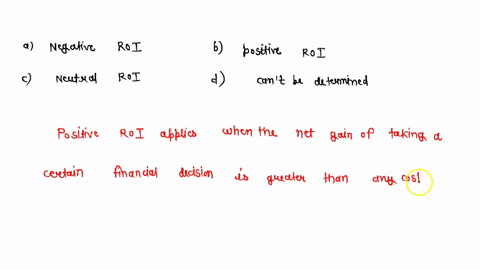 a) Negative ROI b) positive ROI
c) Neutral ROI d) can't be determined
Positive ROI applies when the net gain of taking a
certain financial decision is greater than any cost